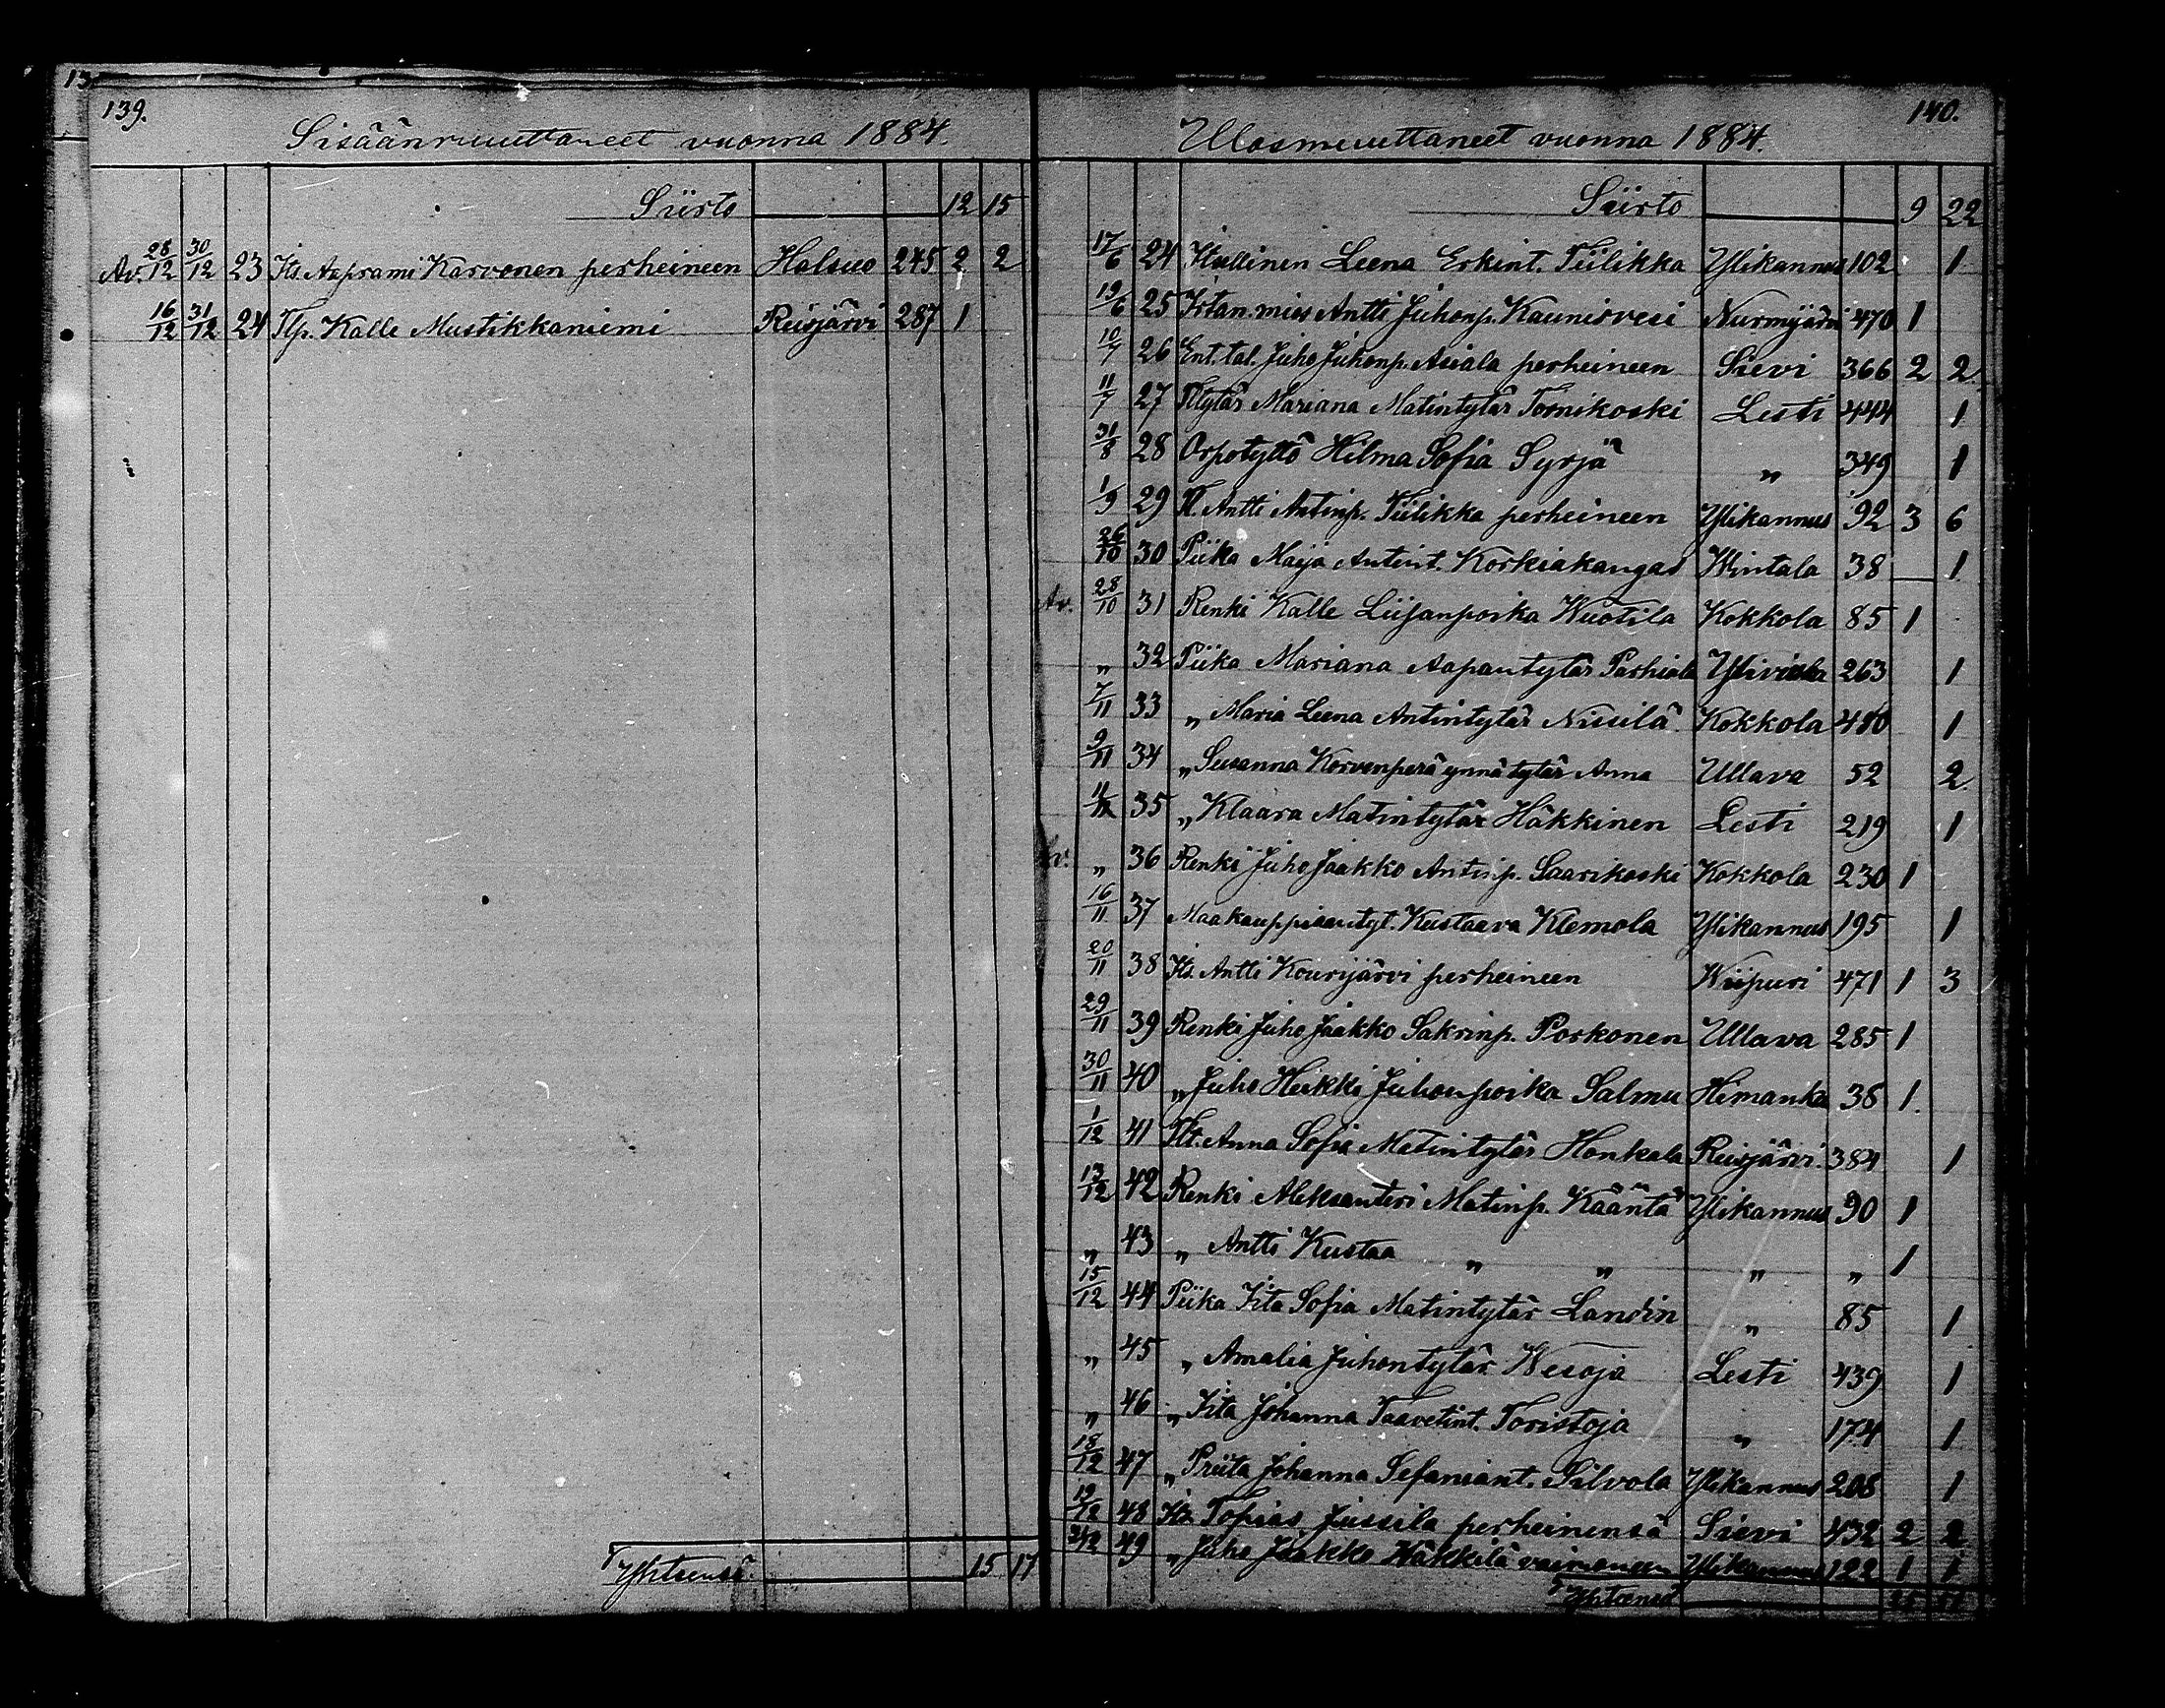 13
139.
Sisäänmuuttaneet vuonna 1884.
Siirto 12 15
Av. 28/12 30/12 23 Its. Aaprami Karvonen perheineen Halsuo 245 2 2
16/12 31/12 24 Tlp. Kalle Mustikkaniemi Reisjärvi 287 1
Yhteensä 15 17
140.
Ulosmuuttaneet vuonna 1884.
Siirto 9 22
17/6 24 Itsellinen Leena Erkint. Tiilikka Ylikannus 102 1
19/6 25 Irtan. mies Antti Juhonp. Kaunisvesi Nurmijärvi 470 1
10/7 26 Ent. tal. Juho Juhonp. Asiala perheineen Sievi 366 2 2
11/7 27 Tltytär Mariana Matintytär Tornikoski Lesti 444 1
31/8 28 Orpotyttö Hilma Sofia Syrjä " 349 1
1/9 29 Tl. Antti Antinp. Tiilikka perheineen Ylikannus 92 3 6
26/10 30 Piika Maija Antint. Korkiakangas Wintala 38 1
Av. 28/10 31 Renki Kalle Liisanpoika Wuotila Kokkola 85 1
" 32 Piika Mariana Aapantytär Parhiala Ylivieska 263 1
7/11 33 " Maria Leena Antintytär Nissilä Kokkola 410 1
9/11 34 " Susanna Korvenperä ynnä tytär Anna Ullava 52 2
11/11 35 " Klaara Matintytär Häkkinen Lesti 219 1
Av. " 36 Renki Juho Jaakko Antinp. Saarikoski Kokkola 230 1
16/11 37 Maakauppiaantyt. Kustaava Klemola Ylikannus 195 1
20/11 38 Its. Antti Kourijärvi perheineen Wiipuri 471 1 3
29/11 39 Renki Juho Jaakko Sakrinp. Porkonen Ullava 285 1
30/11 40 " Juho Heikki Juhonpoika Salmu Himanka 38 1
1/12 41 Tlt. Anna Sofia Matintytär Honkala Reisjärvi 384 1
13/12 42 Renki Aleksanteri Matinp. Kääntä Ylikannus 90 1
" 43 " Antti Kustaa " " " " 1
15/12 44 Piika Iita Sofia Matintytär Landin " 85 1
" 45 " Amalia Juhontytär Wesoja Lesti 439 1
" 46 " Iita Johanna Taavetint. Toristoja " 174 1
18/12 47 " Priita Johanna Sefaniant. Silvola Ylikannus 208 1
19/12 48 Its. Topias Jussila perheinensä Sievi 432 2 2
49 " Juho Jaakko Häkkilä vaimoneen Ylikannus 122 1 1
Yhteensä